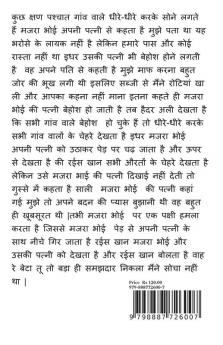 कुछ क्षण पश्चात गांव वाले धीरे-धीरे करके सोने लगते
हैं मजरा भोई अपनी पत्नी से कहता है मुझे पता था यह
भरोसे के लायक नहीं है लेकिन हमारे पास और कोई
रास्ता नहीं था इधर उसकी पत्नी भी बेहोश होने लगती
है वह अपने पति से कहती है मुझे माफ करना बहुत
जोर की भूख लगी थी इसलिए सब्जी से मैंने रोटियां खा
ली और आपका कहना नहीं माना इतना कहते ही मजरा
भोई की पत्नी बेहोश हो जाती है तब हैदर अली देखता है
कि सभी गांव वाले बेहोश हो चुके हैं तो धीरे-धीरे करके
सभी गांव वालों के चेहरे देखता है इधर मजरा भोई
अपनी पत्नी को उठाकर पेड़ पर चढ़ जाता है और ऊपर
से देखता है की रईस खान सभी औरतों के चेहरे देखता है
लेकिन उसे मजरा भाई की पत्नी दिखाई नहीं देती तो
गुस्से में कहता है साली मजरा भोई की पत्नी कहां
गई मुझे तो अपने बदन की प्यास बुझानी थी वह बहुत
ही खूबसूरत थी |तभी मजरा भोई पर एक पक्षी हमला
करता है जिससे मजरा भोई पेड़ से अपनी पत्नी के
साथ नीचे गिर जाता है रईस खान मजरा भोई और
उसकी पत्नी को देखता है और रईस खान बोलता है वाह
रे बेटा तू तो बड़ा ही समझदार निकला मैंने सोचा नहीं
था |
Price Rs 120.00
979-888772600-7
9 798887 726007